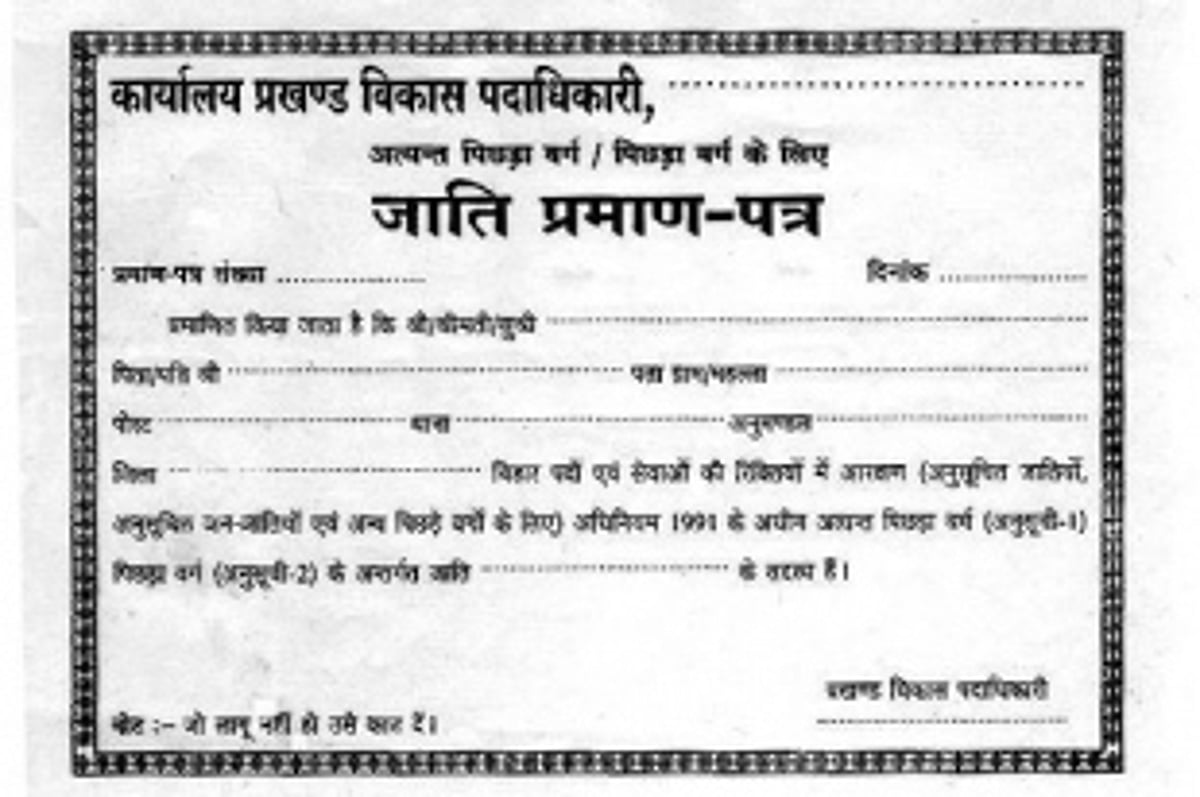 कार्यालय प्रखण्ड विकास पदाधिकारी, ........................
अत्यन्त पिछड़ा वर्ग / पिछड़ा वर्ग के लिए
जाति प्रमाण-पत्र
प्रमाण-पत्र संख्या .................... दिनांक ....................
प्रमाणित किया जाता है कि श्री/श्रीमती/सुश्री ........................
पिता/पति श्री ........................ पता ग्राम/महल्ला ........................
पोस्ट ........................ थाना ........................ अनुमण्डल ........................
जिला ........................ बिहार पदों एवं सेवाओं की रिक्तियों में आरक्षण (अनुसूचित जातियों,
अनुसूचित जन-जातियों एवं अन्य पिछड़े वर्गों के लिए) अधिनियम 1991 के अधीन अत्यन्त पिछड़ा वर्ग (अनुसूची-1)
पिछड़ा वर्ग (अनुसूची-2) के अन्तर्गत जाति ........................ के सदस्य हैं।
प्रखण्ड विकास पदाधिकारी
........................
नोट :– जो लागू नहीं हो उसे काट दें।